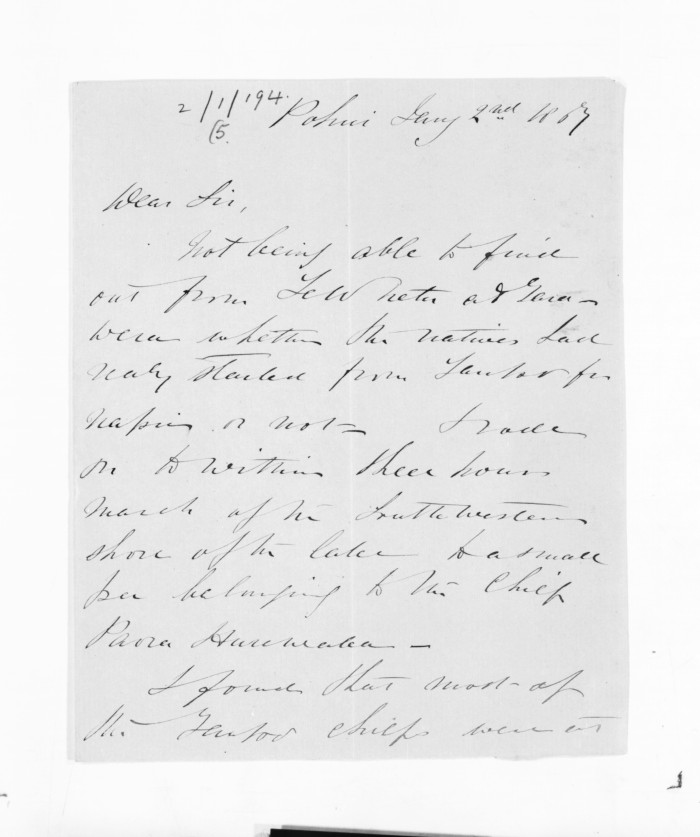 2/1/194.
15.
Pohui Jany 2nd 1867
Dear Sir,
Not being able to find
out from Te Wheta at Tara-
wera whether the natives had
realy started from Taupo for
Napier or not - I rode
on to within three hours
march of the Southwestern
shore of the lake to a small
pa belonging to the Chief
Paora
I found that most of
the Taupo chiefs were at